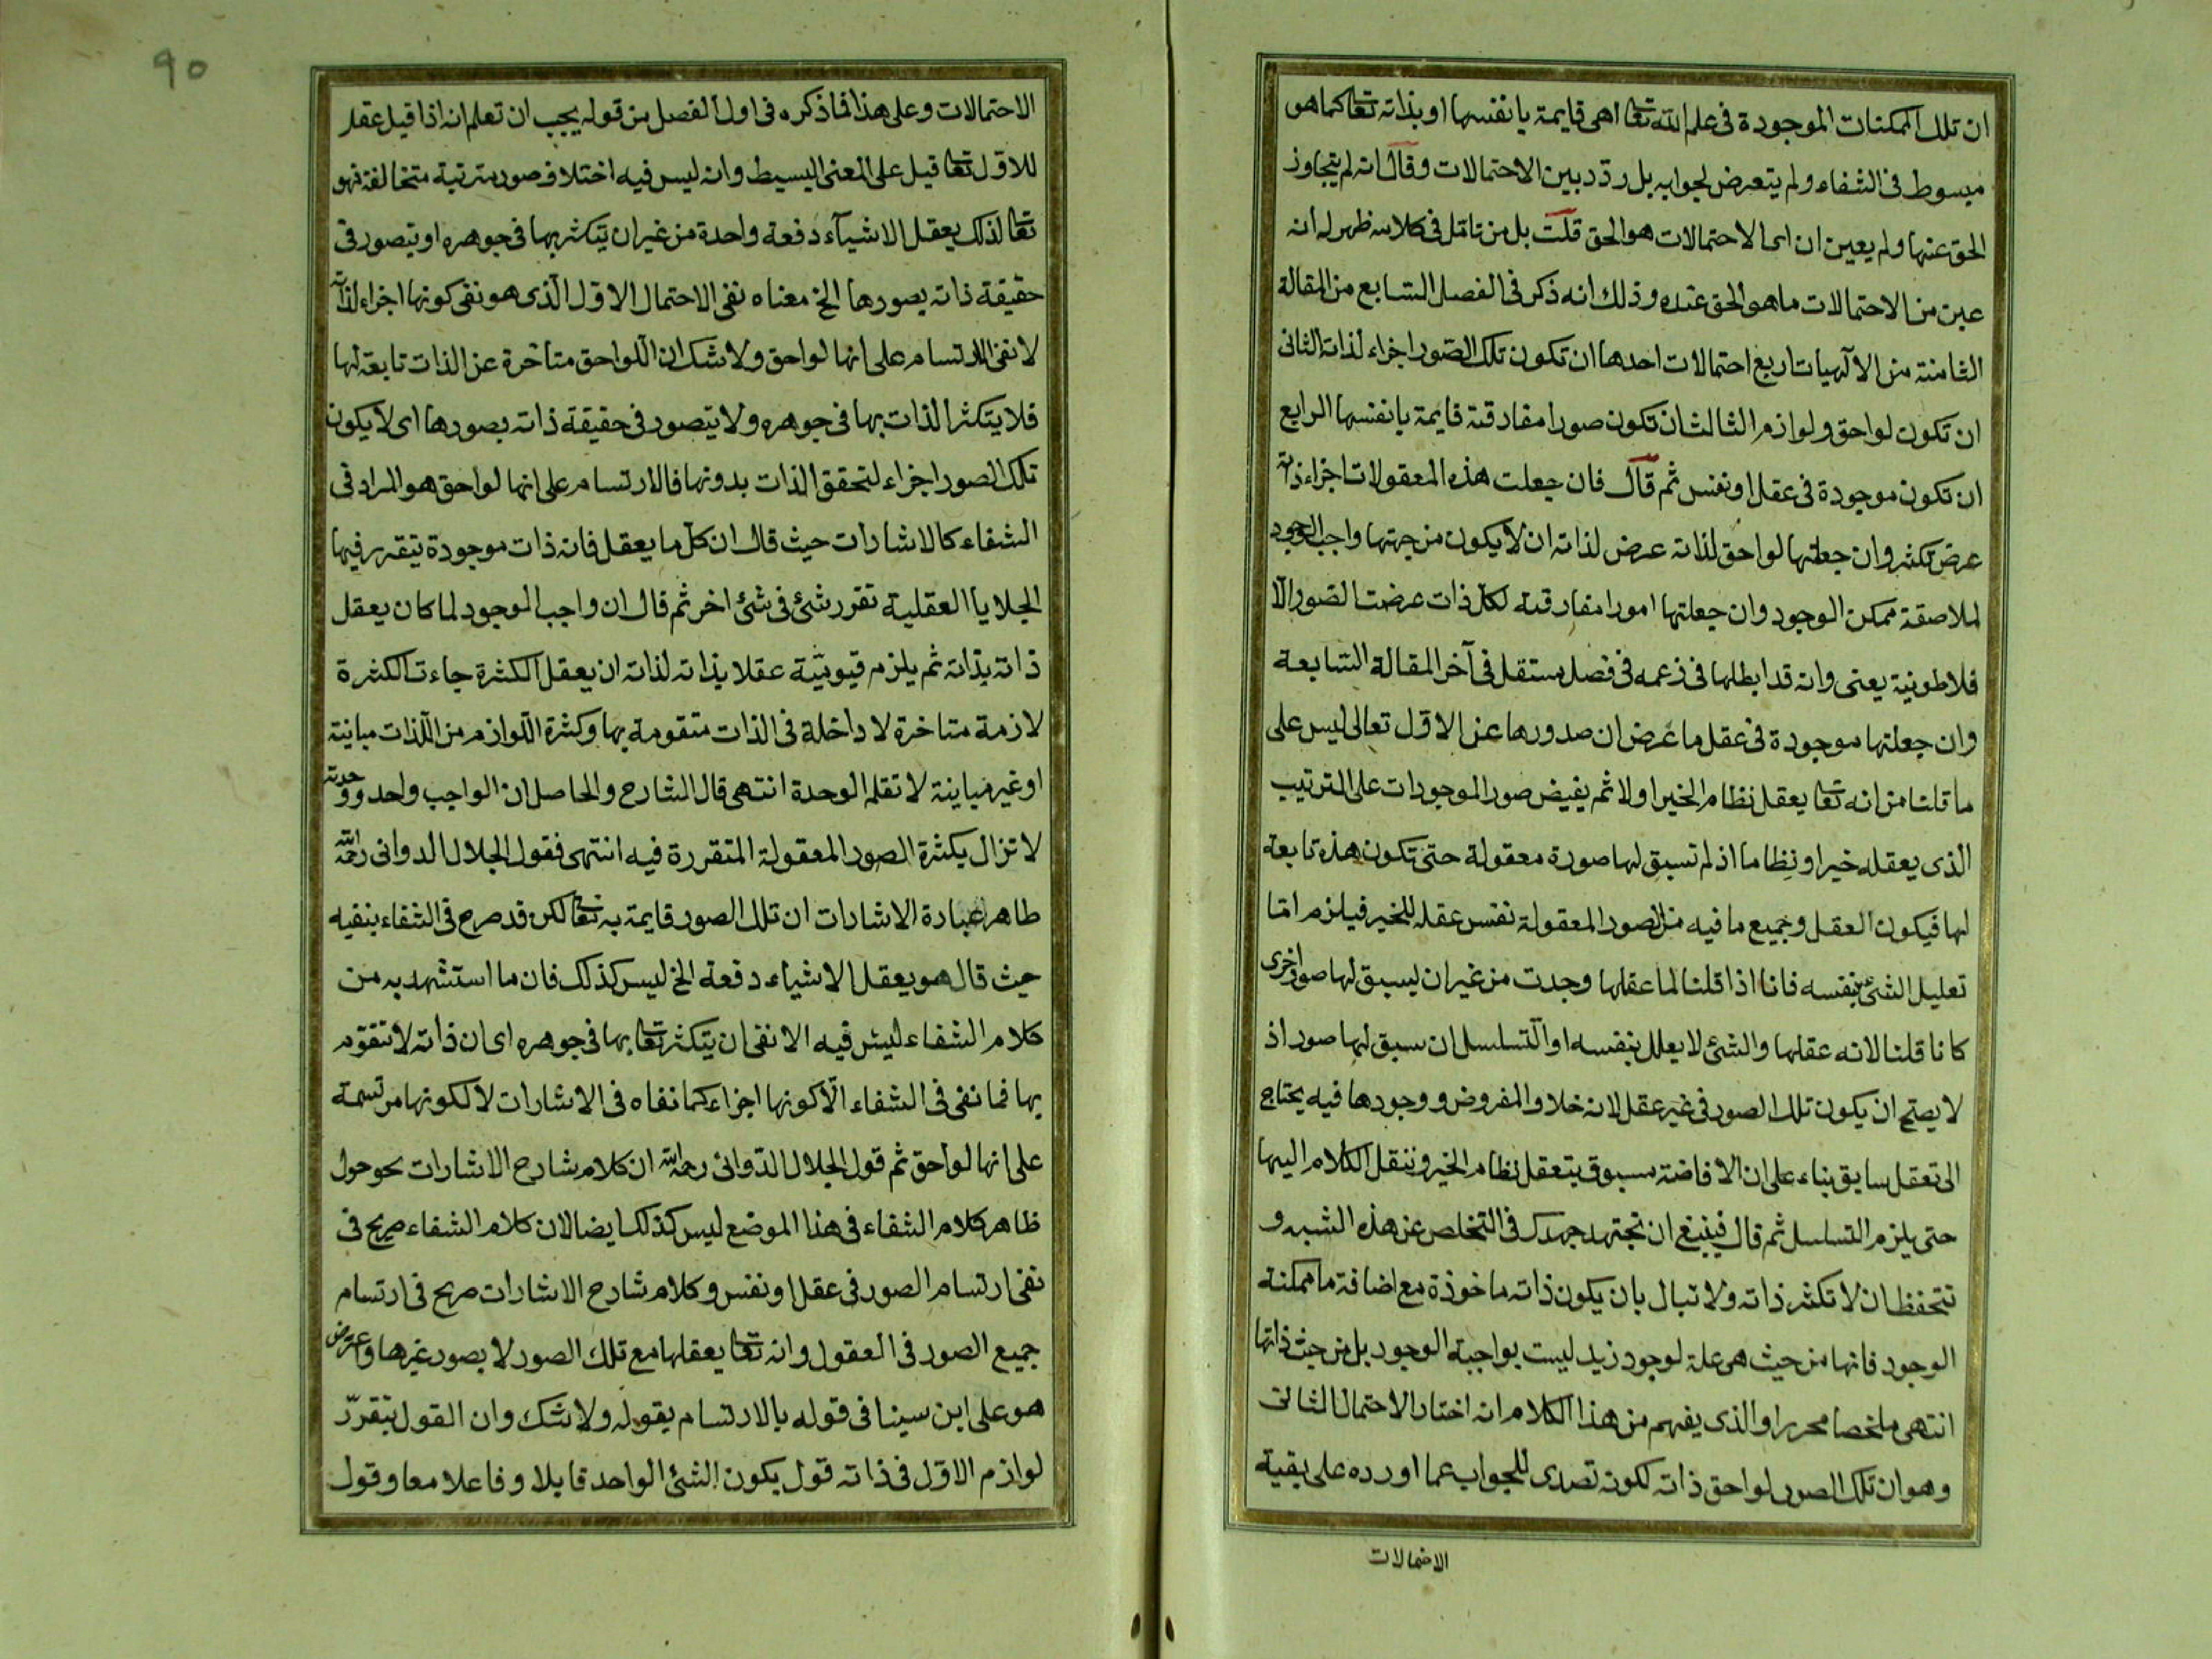 ان تلك الممكنات الموجودة فى علم الله تعا اهى قايمة بانفسها او بذاته تعا كما هو
مبسوط فى الشفاء ولم يتعرض لجوابه بل ردّد بين الاحتمالات وقال انه لم يتجاوز
الحق عنها ولم يعين ان اى الاحتمالات هو الحق قلت بل من تامّل فى كلامه ظهر له انه
عين من الاحتمالات ما هو الحق عنده وذلك انه ذكر فى الفصل السابع من المقالة
الثامنة من الآلهيات اربع احتمالات احدها ان تكون تلك الصّور اجزاء لذاته الثانى
ان تكون لواحق ولوازم الثالث ان تكون صورا مفارقته قايمة بانفسها الرابع
ان تكون موجودة فى عقل او نفس ثم قال فان جعلت هذه المعقولات اجزاء ذاته
عرض تكثر وان جعلتها لواحق لذاته عرض لذاته ان لا يكون من جهتها واجب الوجود
لملاصقة ممكن الوجود وان جعلتها امورا مفارقته لكل ذات عرضت الصور الا
فلاطونية يعنى وانه قد ابطلها فى زعمه فى فصل مستقل فى آخر المقالة السّابعة
وان جعلتها موجودة فى عقل ما عرض ان صدورها عن الاول تعالى ليس على
ما قلنا من انه تعا يعقل نظام الخير اولا ثم يفيض صور الموجودات على الترتيب
الذى يعقله خيرا ونظاما اذ لم تسبق لها صورة معقولة حتى تكون هذه تابعة
لها فيكون العقل وجميع ما فيه من الصور المعقولة نفس عقله للخير فيلزم امّا
تعليل الشئ بنفسه فانا اذا قلنا لما عقلها وجدت من غير ان يسبق لها صور اخرى
كانا قلنا لانه عقلها والشئ لا يعلل بنفسه او التّسلسل ان سبق لها صور اذ
لا يصح ان يكون تلك الصور فى غير عقل لانه خلاو المفروض ووجودها فيه يحتاج
الى تعقل سابق بناء على ان الافاضة مسبوق بتعقل نظام الخير وننقل الكلام اليها
حتى يلزم التسلسل ثم قال فينبغ ان تجتهد جهدك فى التخلص عن هذه الشبه و
تتحفظ ان لا تكثر ذاته ولا تبال بان يكون ذاته ماخوذة مع اضافة ما ممكنة
الوجود فانها من حيث هى علة لوجود زيد ليست بواجبة الوجود بل من حيث ذاتها
انتهى ملخصا محررا والذى يفهم من هذا الكلام انه اختار الاحتمال الثانى
وهو ان تلك الصور لواحق ذاته لكونه تصدى للجواب عما اورده على بقية
الاحتمالات
٩٥
الاحتمالات وعلى هذا فما ذكره فى اول الفصل من قوله يجب ان تعلم انه اذا قيل عقل
للاول تعا قيل على المعنى البسيط وانه ليس فيه اختلاف صور مترتبة متخالفة فهو
تعا لذلك يعقل الاشيآء دفعة واحدة من غير ان يتكثر بها فى جوهره او يتصور فى
حقيقة ذاته بصورها الخ معناه نفى الاحتمال الاوّل الذى هو نفى كونها اجزاء لذاته
لا نفى الارتسام على انها لواحق ولا شك ان اللواحق متأخرة عن الذات تابعة لها
فلا يتكثر الذات بها فى جوهره ولا يتصور فى حقيقة ذاته بصورها اى لا يكون
تلك الصور اجزاء لتحقق الذات بدونها فالارتسام على انها لواحق هو المراد فى
الشفاء كالاشارات حيث قال ان كل ما يعقل فانه ذات موجودة تتقرر فيها
الجلايا العقلية تقرر شئ فى شئ اخر ثم قال ان واجب الموجود لما كان يعقل
ذاته بذاته ثم يلزم قيوميّة عقلا بذاته لذاته ان يعقل الكثرة جاءت الكثرة
لازمة متاخرة لا داخلة فى الذات متقومة بها وكثرة اللوازم من اللذات مباينة
او غير مباينة لا تقلم الوحدة انتهى قال الشارح والحاصل ان الواجب واحد ووحدته
لا تزال بكثرة الصور المعقولة المتقررة فيه انتهى فقول الجلال الدوانى رحمه الله
ظاهر عبارة الاشارات ان تلك الصور قايمة به تعا لكن قد صرح فى الشفاء بنفيه
حيث قال هو يعقل الاشياء دفعة الخ ليس كذلك فان ما استشهد به من
كلام الشفاء ليس فيه الا نفى ان يتكثر تعا بها فى جوهره اى ان ذاته لا تتقوّم
بها فما نفى فى الشفاء الّا كونها اجزاء كما نفاه فى الاشارات لا لكونها مرتسمة
على انها لواحق ثم قول الجلال الدّوانى رحمه الله ان كلام شارح الاشارات يحوحول
ظاهر كلام الشفاء فى هذا الموضع ليس كذلك ايضا لان كلام الشفاء صريح فى
نفى ارتسام الصور فى عقل او نفس وكلام شارح الاشارات صريح فى ارتسام
جميع الصور فى العقول وانه تعا يعقلها مع تلك الصور لا بصور غيرها واعترض
هو على ابن سينا فى قوله بالارتسام بقوله ولا شك وان القول بتقرّر
لوازم الاول فى ذاته قول بكون الشئ الواحد قابلا وفاعلا معا وقول